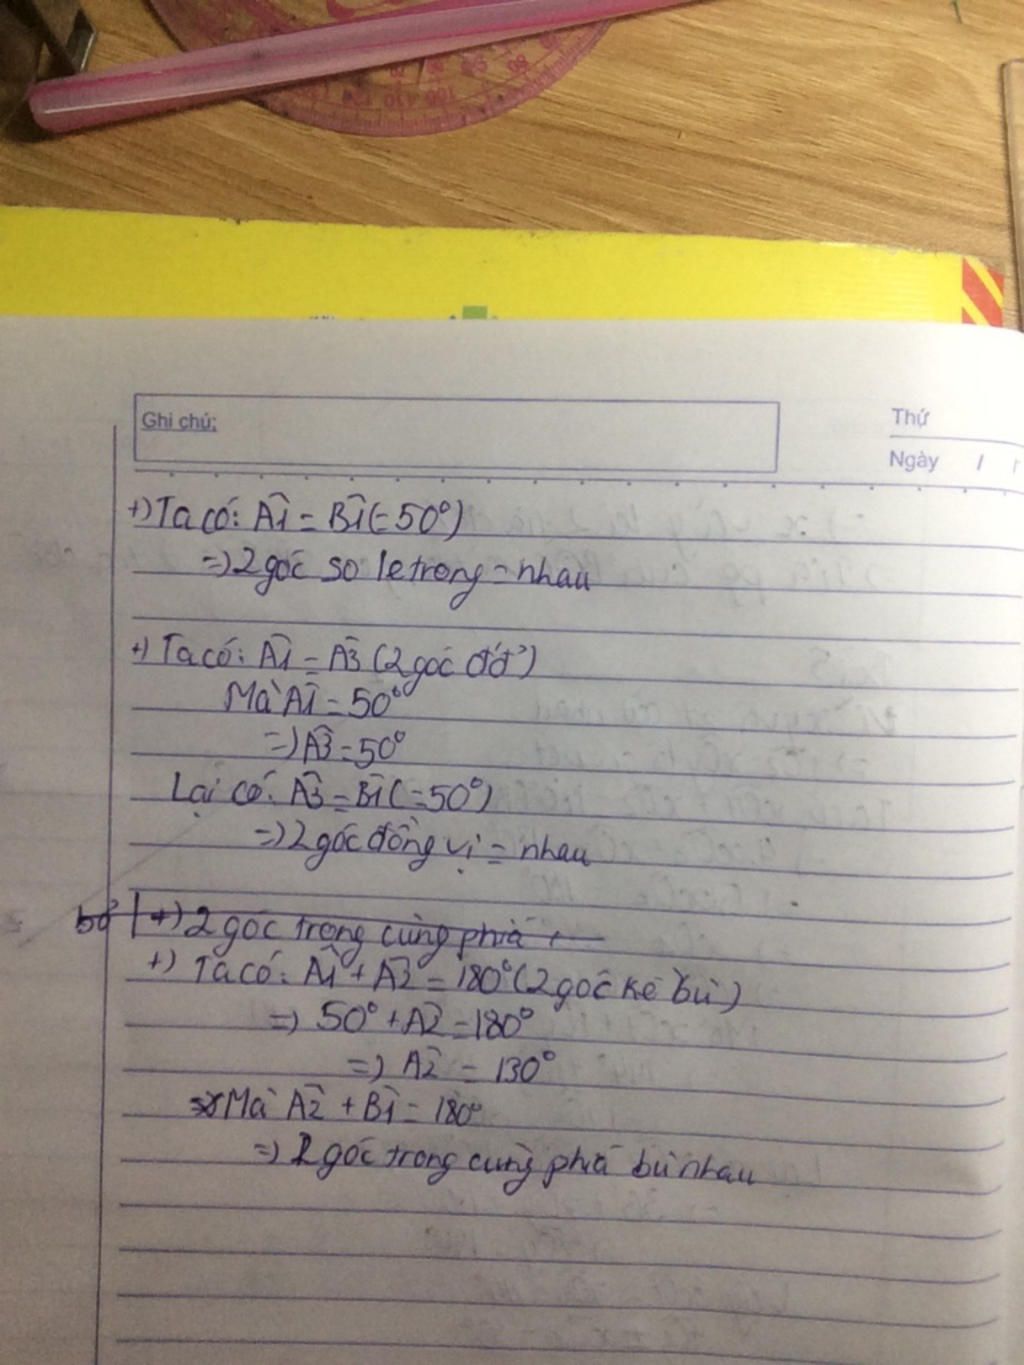 Ghi chú:
Thứ
Ngày /
+) Ta có: Â1 = B̂1 (= 50°)
=) 2 góc so le trong = nhau
+) Ta có: Â1 = Â3 (2 góc đđ)
Mà Â1 = 50°
=) Â3 = 50°
Lại có: Â3 = B̂1 (= 50°)
=) 2 góc đồng vị = nhau
bỏ +) 2 góc trong cùng phía
+) Ta có: Â1 + Â2 = 180° (2 góc kề bù)
=) 50° + Â2 = 180°
=) Â2 = 130°
Mà Â2 + B̂1 = 180°
=) 2 góc trong cùng phía bù nhau